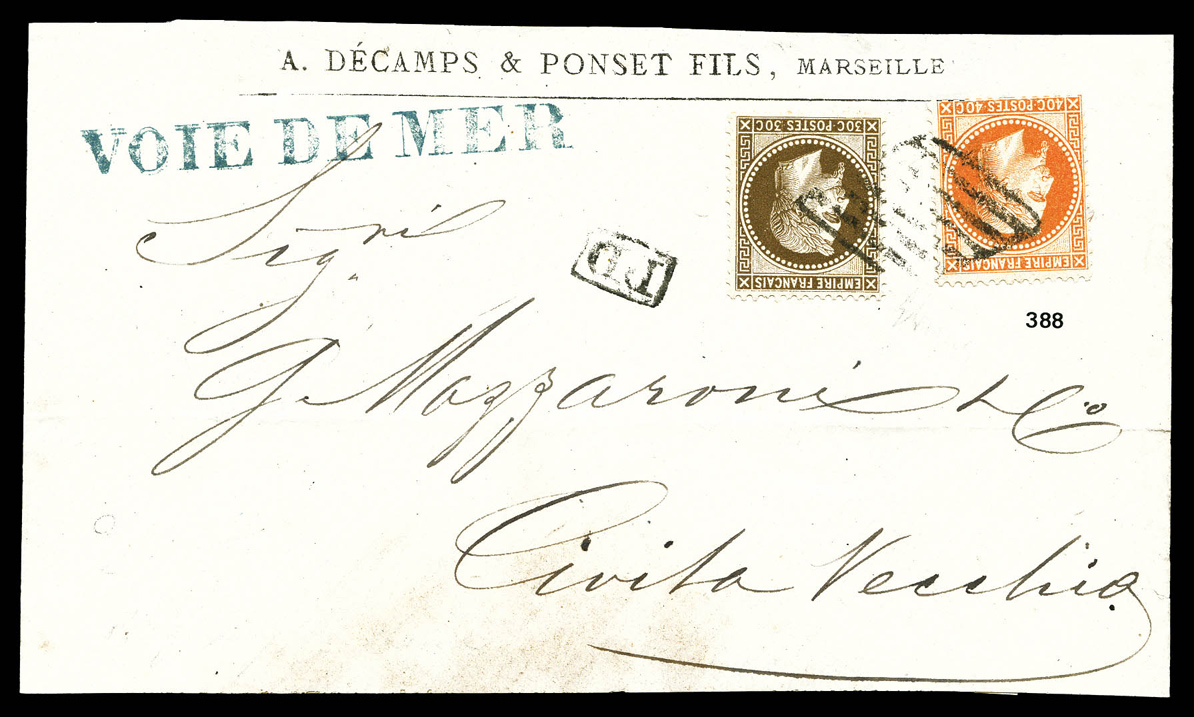 A. DÉCAMPS & PONSET FILS, MARSEILLE
VOIE DE MER
30C. POSTES 30C.
40C. POSTES 40C.
Sigri
P.D
EMPIRE FRANÇAIS
EMPIRE FRANÇAIS
388
G. Mazzaroni & Co
Civita Vecchia